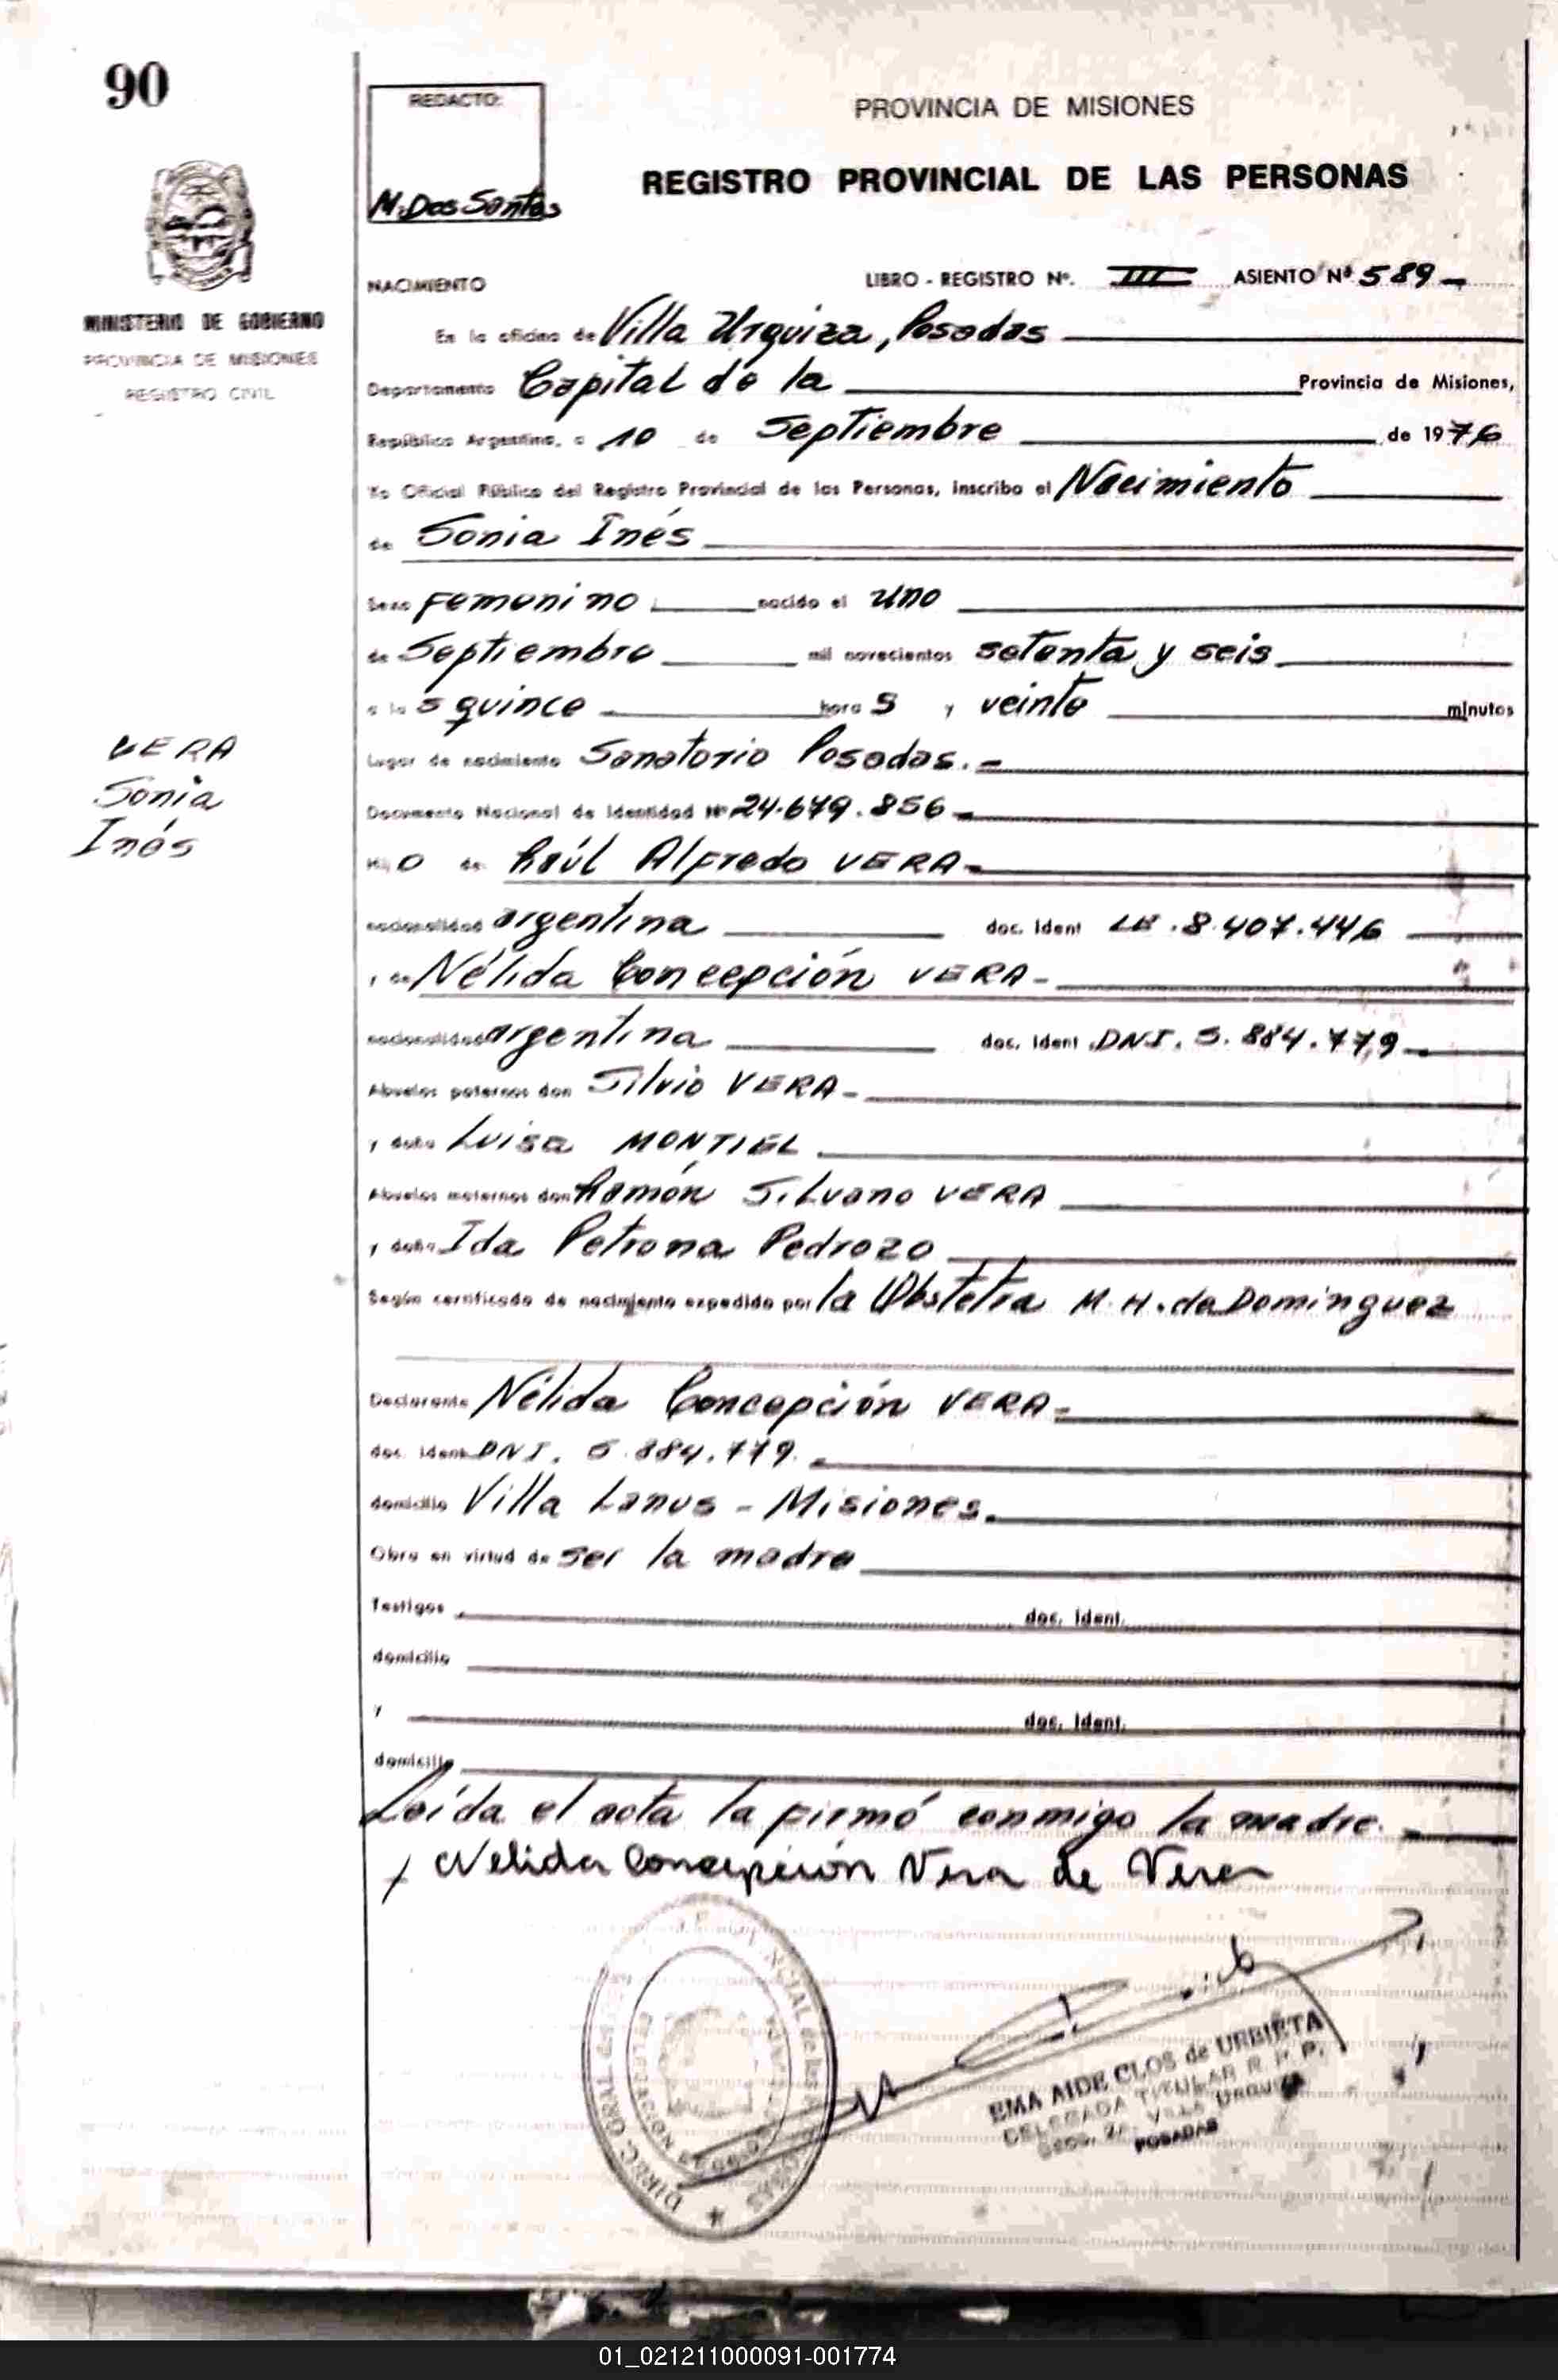 90
REDACTO:
M. Dos Santos
PROVINCIA DE MISIONES
REGISTRO PROVINCIAL DE LAS PERSONAS
MINISTERIO DE GOBIERNO
PROVINCIA DE MISIONES
REGISTRO CIVIL
NACIMIENTO LIBRO - REGISTRO Nº. III ASIENTO Nº 589 -
En la oficina de Villa Urquiza, Posadas
Departamento Capital de la Provincia de Misiones,
República Argentina, a 10 de Septiembre de 1976
Yo Oficial Público del Registro Provincial de las Personas, inscribo el Nacimiento
de Sonia Inés
Sexo Femenino nacido el uno
de Septiembre mil novecientos setenta y seis
a las quince horas y veinte minutos
Lugar de nacimiento Sanatorio Posadas. -
Documento Nacional de Identidad Nº 24.679.856 -
VERA
Sonia
Inés
Hijo de Raúl Alfredo VERA -
nacionalidad argentina doc. ident LE. 8.407.446
y de Nélida Concepción VERA -
nacionalidad argentina doc. ident DNI. 5.884.779 -
Abuelos paternos don Silvio VERA -
y doña Luisa MONTIEL
Abuelos maternos don Ramón Silvano VERA
y doña Ida Petrona Pedrozo
Según certificado de nacimiento expedido por la Obstetra M. H. de Dominguez
Declarante Nélida Concepción VERA -
doc. ident DNI. 5.884.779. -
domicilio Villa Lanus - Misiones.
Obra en virtud de ser la madre
Testigos doc. ident.
domicilio
y doc. ident.
domicilio
Leída el acta la firmó conmigo la madre. -
Nelida Concepción Vera de Vera
EMA AIDE CLOS de URBIETA
DELEGADA TITULAR R. P. P.
Secc. 2a. VILLA URQUIZA
POSADAS
01_021211000091-001774